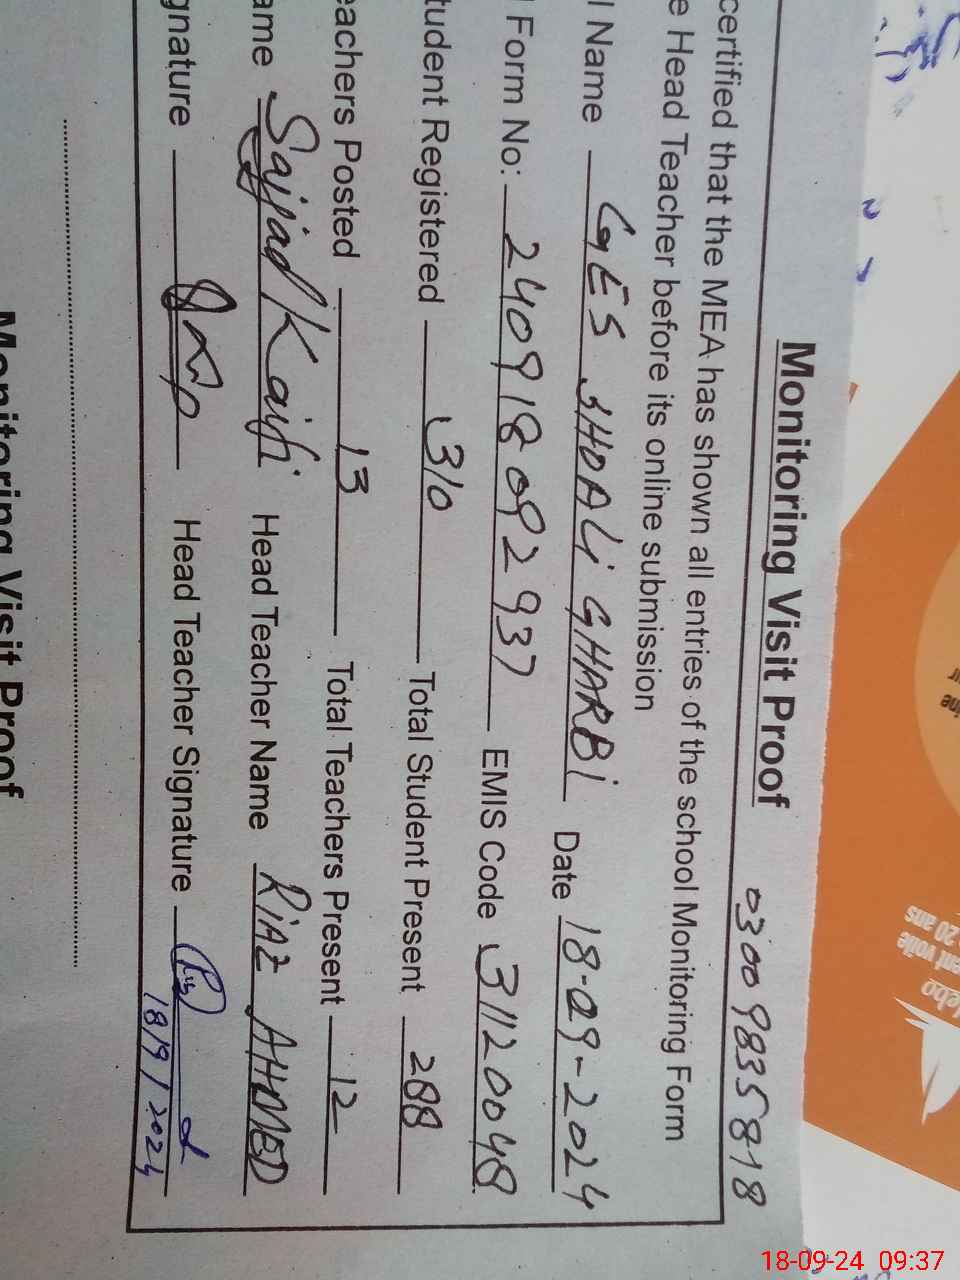 Monitoring Visit Proof 03009835818
certified that the MEA has shown all entries of the school Monitoring Form
e Head Teacher before its online submission
l Name GES SHDALi GHARBi Date 18-09-2024
Form No: 240918092937 EMIS Code 31120048
tudent Registered 310 Total Student Present 288
eachers Posted 13 Total Teachers Present 12
ame Sajjad Kaifi Head Teacher Name RiAZ AHMED
gnature Head Teacher Signature
18/9/2024
Monitoring Visit Proof
20 ans
18-09-24 09:37